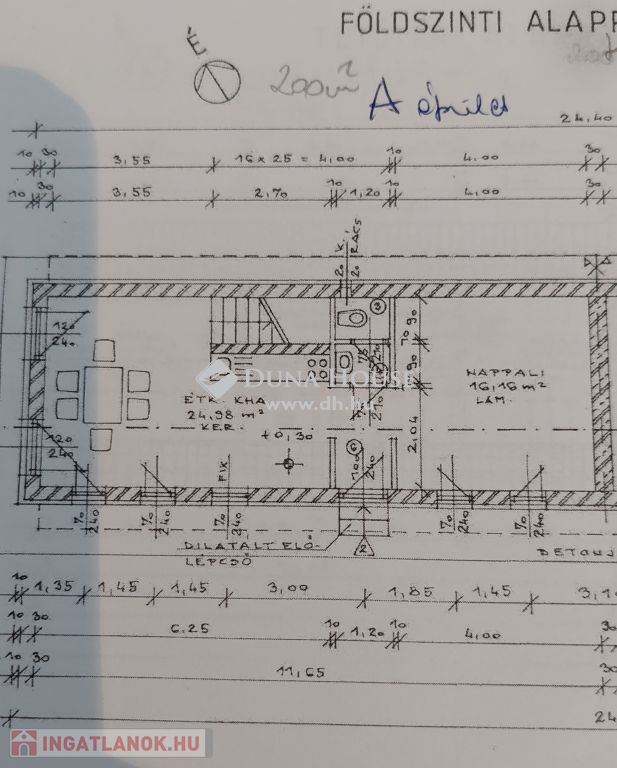 FÖLDSZINTI ALAPR
É
200m²
A épület
24.40
10 30 3,55 16 x 25 = 4,00 10 4.00 30
10 30 3,55 2,70 10 1,20 10 4,00 30
20 K.
20 RÁCS
120
240
10 90
90
75
210
NAPPALI
16,16 m²
LAM.
DUNA HOUSE
www.dh.hu
ÉTK. KHA
24,98 m²
KER.
+0,30
2,04
120
240
100
240
FIX
70
240
70
240
70
240
70
240
70
240
DILATÁLT ELŐ-
LÉPCSŐ
DETONJ
10 1,35 1,45 1,45 3,00 1,85 1,45 3,1
10 30 6.25 10 1,20 10 4,00 30
10 30 11,65 30
24
INGATLANOK.HU